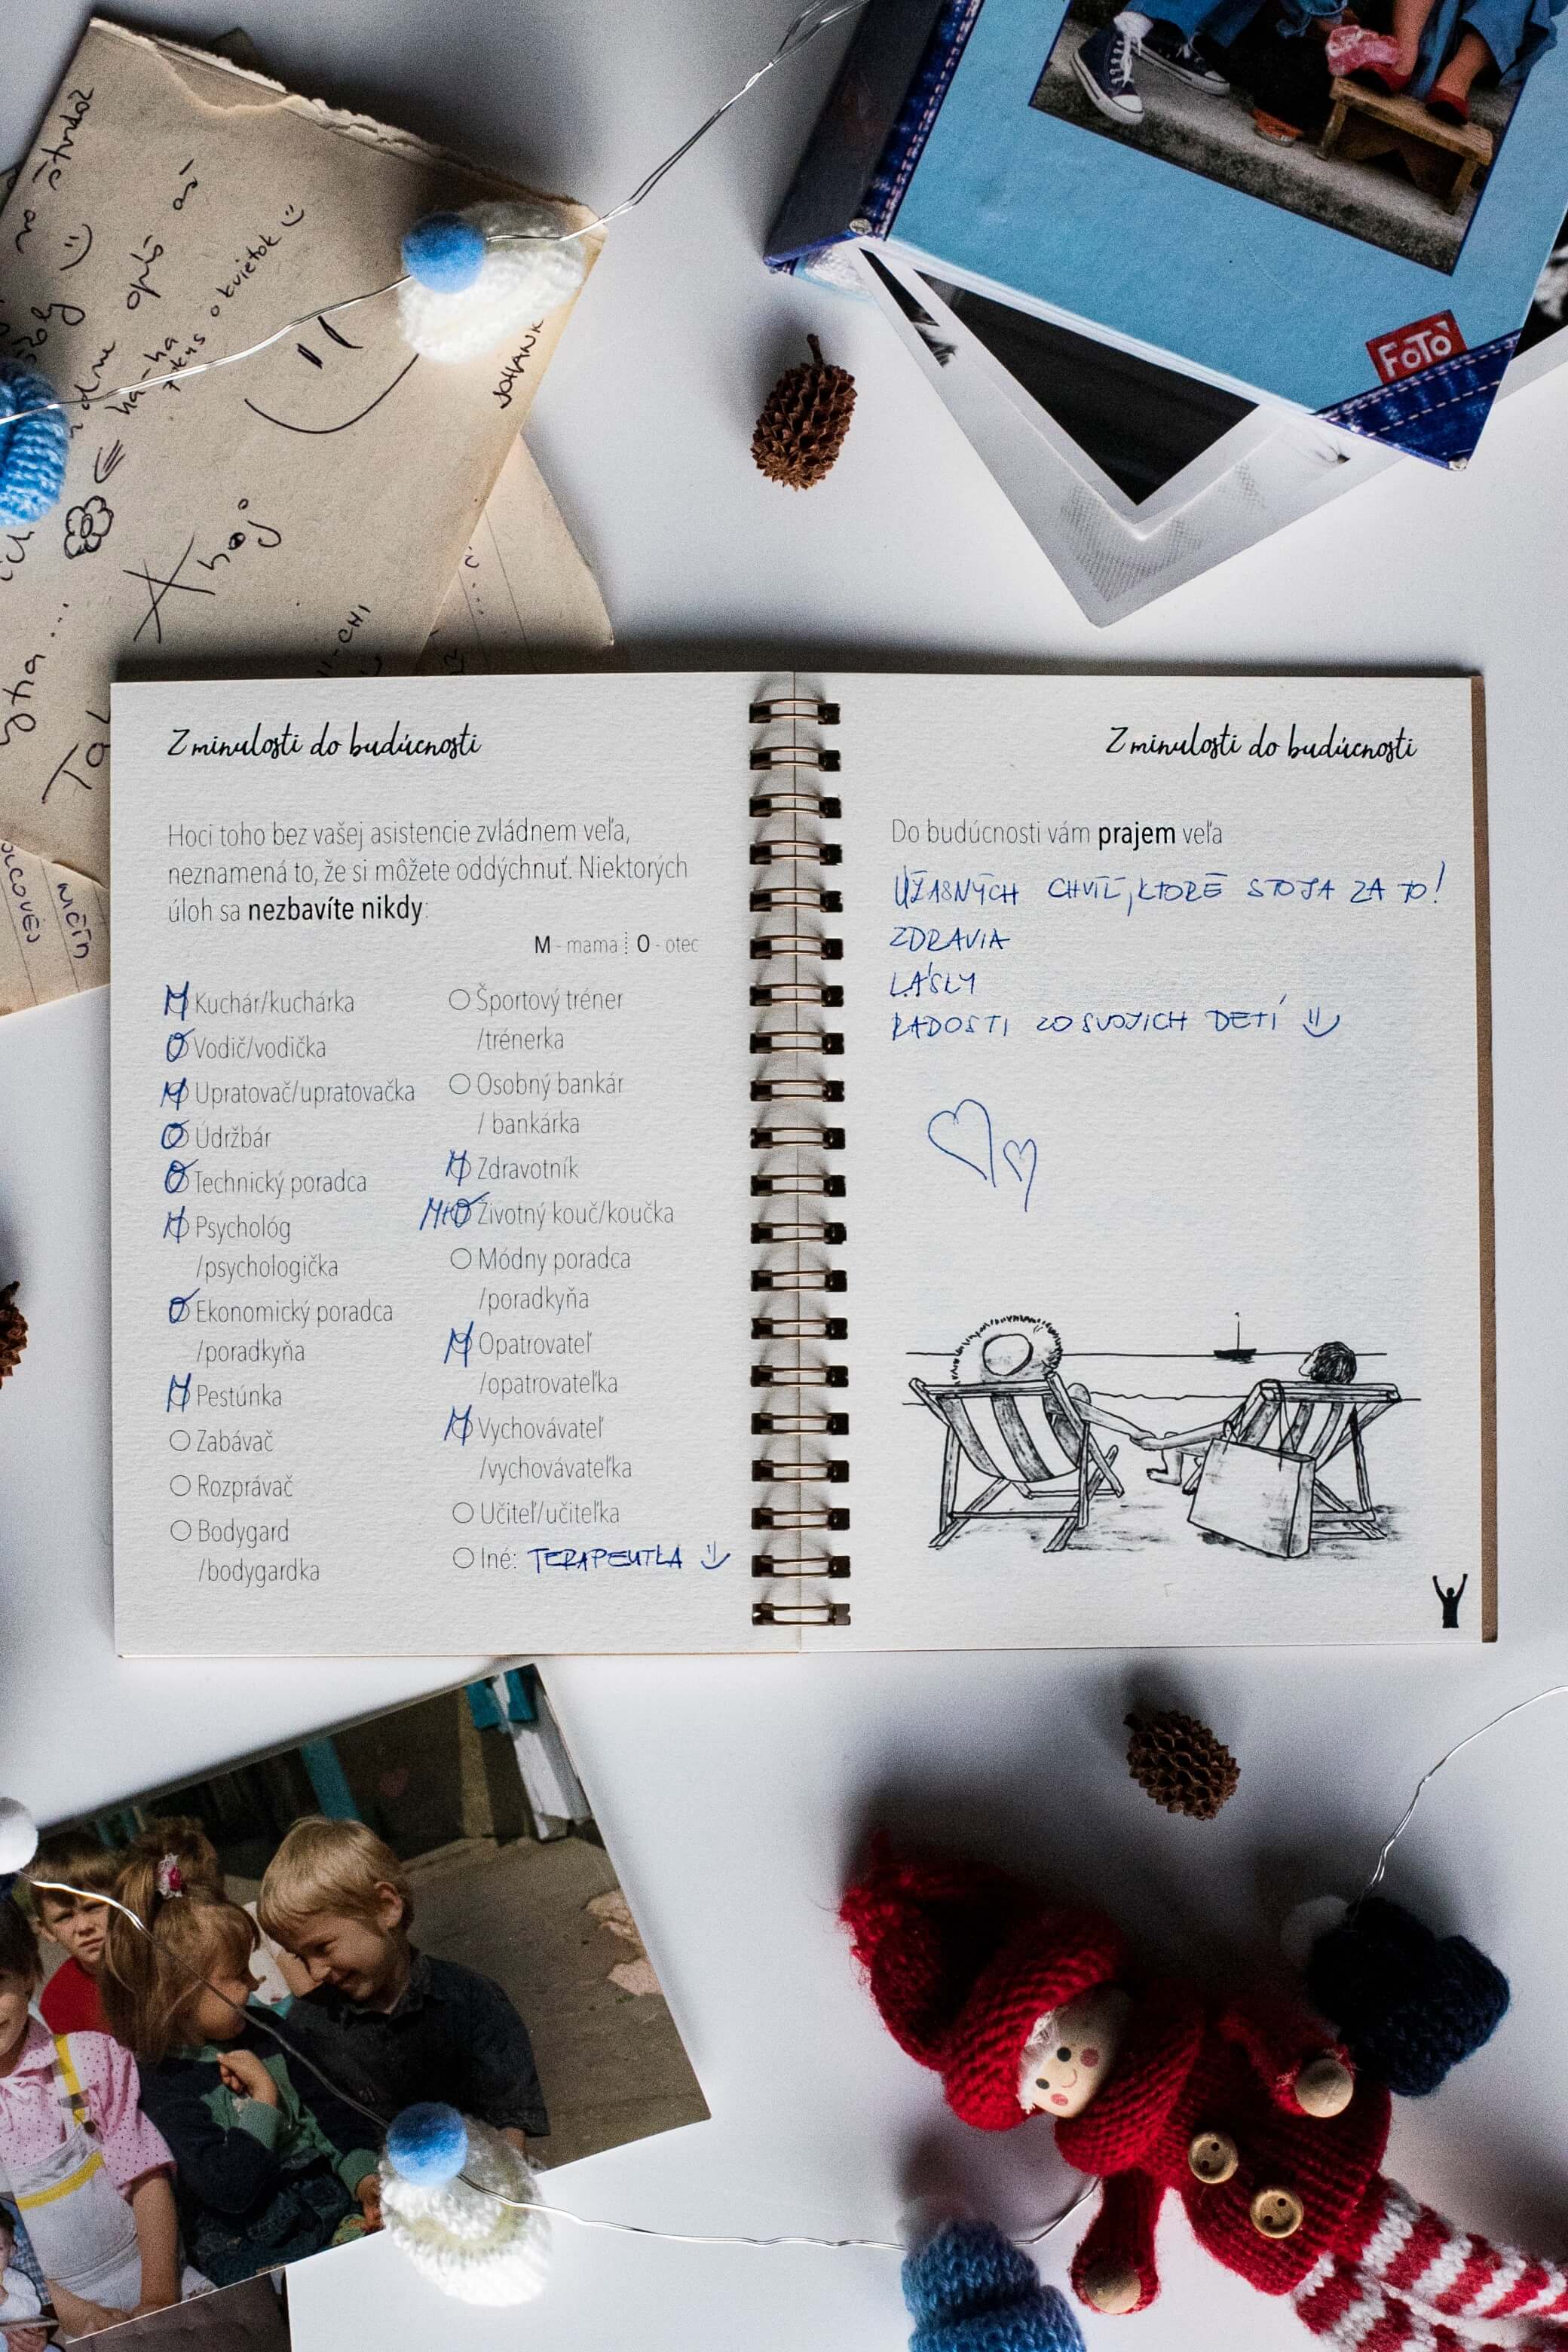 na štvrdož
školy :)
opto asi
ha-ha
okvietok :)
JOHANK
Ahoj
Z minulosti do budúcnosti
Hoci toho bez vašej asistencie zvládnem veľa,
neznamená to, že si môžete oddýchnuť. Niektorých
úloh sa nezbavíte nikdy:
M - mama O - otec
M Kuchár/kuchárka
O Vodič/vodička
M Upratovač/upratovačka
O Údržbár
O Technický poradca
M Psychológ
/psychologička
O Ekonomický poradca
/poradkyňa
M Pestúnka
Zabávač
Rozprávač
Bodygard
/bodygardka
Športový tréner
/trénerka
Osobný bankár
/ bankárka
M Zdravotník
M+O Životný kouč/koučka
Módny poradca
/poradkyňa
M Opatrovateľ
/opatrovateľka
M Vychovávateľ
/vychovávateľka
Učiteľ/učiteľka
Iné: TERAPEUTKA :)
Z minulosti do budúcnosti
Do budúcnosti vám prajem veľa
ÚŽASNÝCH CHVÍĽ, KTORÉ STOJA ZA TO!
ZDRAVIA
LÁSKY
RADOSTI ZO SVOJICH DETÍ :)
FOTO